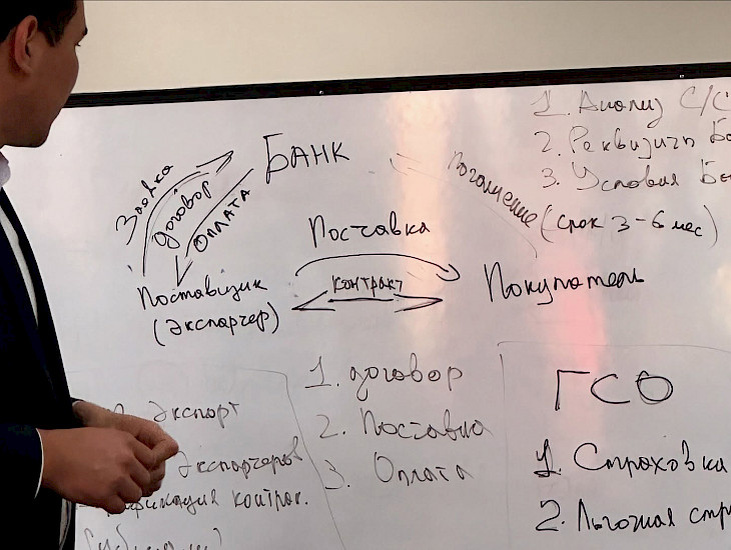 1. Анализ С/С
2. Реквизиты Ба
3. Условия Ба
БАНК
Заявка
договор
ОПЛАТА
Погашение (срок 3-6 мес)
Поставка
контракт
Поставщик
(экспортер)
Покупатель
1. договор
2. Поставка
3. Оплата
ГСО
1. Страховка
2. Льготная стр
экспорт
экспортеров
фикация контрак.